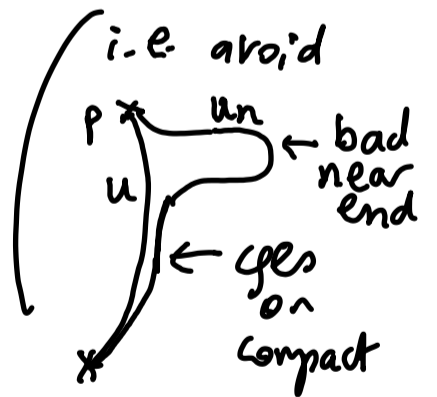 i.e. avoid
un
p
bad
near
end
u
yes
on
compact